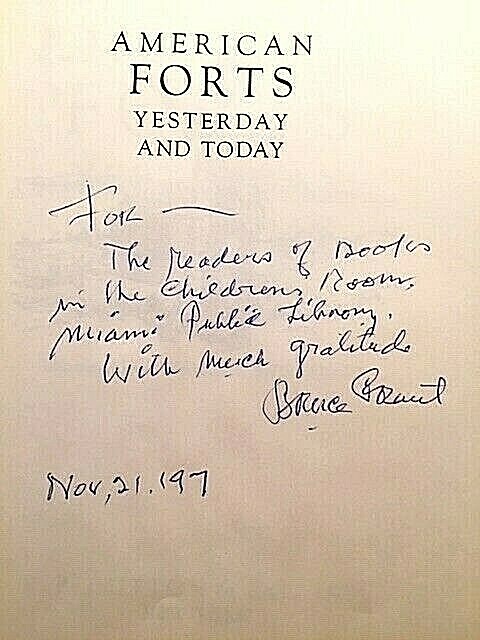 AMERICAN
FORTS
YESTERDAY
AND TODAY
For —
The readers of Books
in the Childrens Room,
Miami Public Library.
With much gratitude
Bruce Grant
Nov, 21. 197